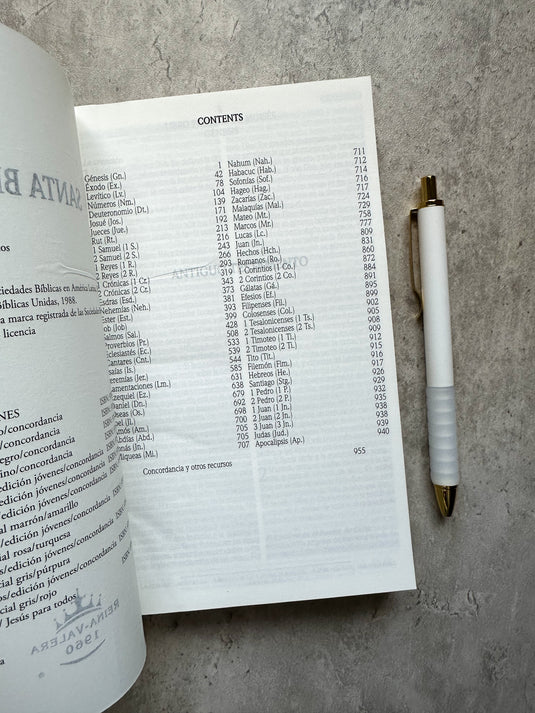 tos
ciedades Bíblicas en América Latina,
Bíblicas Unidas, 1988.
a marca registrada de las Sociedades
licencia
NES
o/concordancia
concordancia
negro/concordancia
ino/concordancia
edición jóvenes/concordancia
al marrón/amarillo
/edición jóvenes/concordancia
ial rosa/turquesa
edición jóvenes/concordancia
cial gris/púrpura
edición jóvenes/concordancia
cial gris/rojo
/ Jesús para todos
SANTA BI
REINA-VALERA
1960
CONTENTS
Génesis (Gn.) 1
Éxodo (Ex.) 42
Levítico (Lv.) 78
Números (Nm.) 104
Deuteronomio (Dt.) 139
Josué (Jos.) 171
Jueces (Jue.) 192
Rut (Rt.) 213
1 Samuel (1 S.) 216
2 Samuel (2 S.) 243
1 Reyes (1 R.) 266
2 Reyes (2 R.) 293
1 Crónicas (1 Cr.) 319
2 Crónicas (2 Cr.) 343
Esdras (Esd.) 373
Nehemías (Neh.) 381
Ester (Est.) 393
Job (Job) 399
Salmos (Sal.) 428
Proverbios (Pr.) 508
Eclesiastés (Ec.) 533
Cantares (Cnt.) 539
Isaías (Is.) 544
Jeremías (Jer.) 585
Lamentaciones (Lm.) 631
Ezequiel (Ez.) 638
Daniel (Dn.) 679
Oseas (Os.) 692
Joel (Jl.) 698
Amós (Am.) 700
Abdías (Abd.) 705
Jonás (Jon.) 705
Miqueas (Mi.) 707
Nahum (Nah.) 711
Habacuc (Hab.) 712
Sofonías (Sof.) 714
Hageo (Hag.) 716
Zacarías (Zac.) 717
Malaquías (Mal.) 724
Mateo (Mt.) 729
Marcos (Mr.) 758
Lucas (Lc.) 777
Juan (Jn.) 809
Hechos (Hch.) 831
Romanos (Ro.) 860
1 Corintios (1 Co.) 872
2 Corintios (2 Co.) 884
Gálatas (Gá.) 891
Efesios (Ef.) 895
Filipenses (Fil.) 899
Colosenses (Col.) 902
1 Tesalonicenses (1 Ts.) 905
2 Tesalonicenses (2 Ts.) 908
1 Timoteo (1 Ti.) 909
2 Timoteo (2 Ti.) 912
Tito (Tit.) 915
Filemón (Flm.) 916
Hebreos (He.) 917
Santiago (Stg.) 926
1 Pedro (1 P.) 929
2 Pedro (2 P.) 932
1 Juan (1 Jn.) 935
2 Juan (2 Jn.) 938
3 Juan (3 Jn.) 938
Judas (Jud.) 939
Apocalipsis (Ap.) 940
Concordancia y otros recursos 955